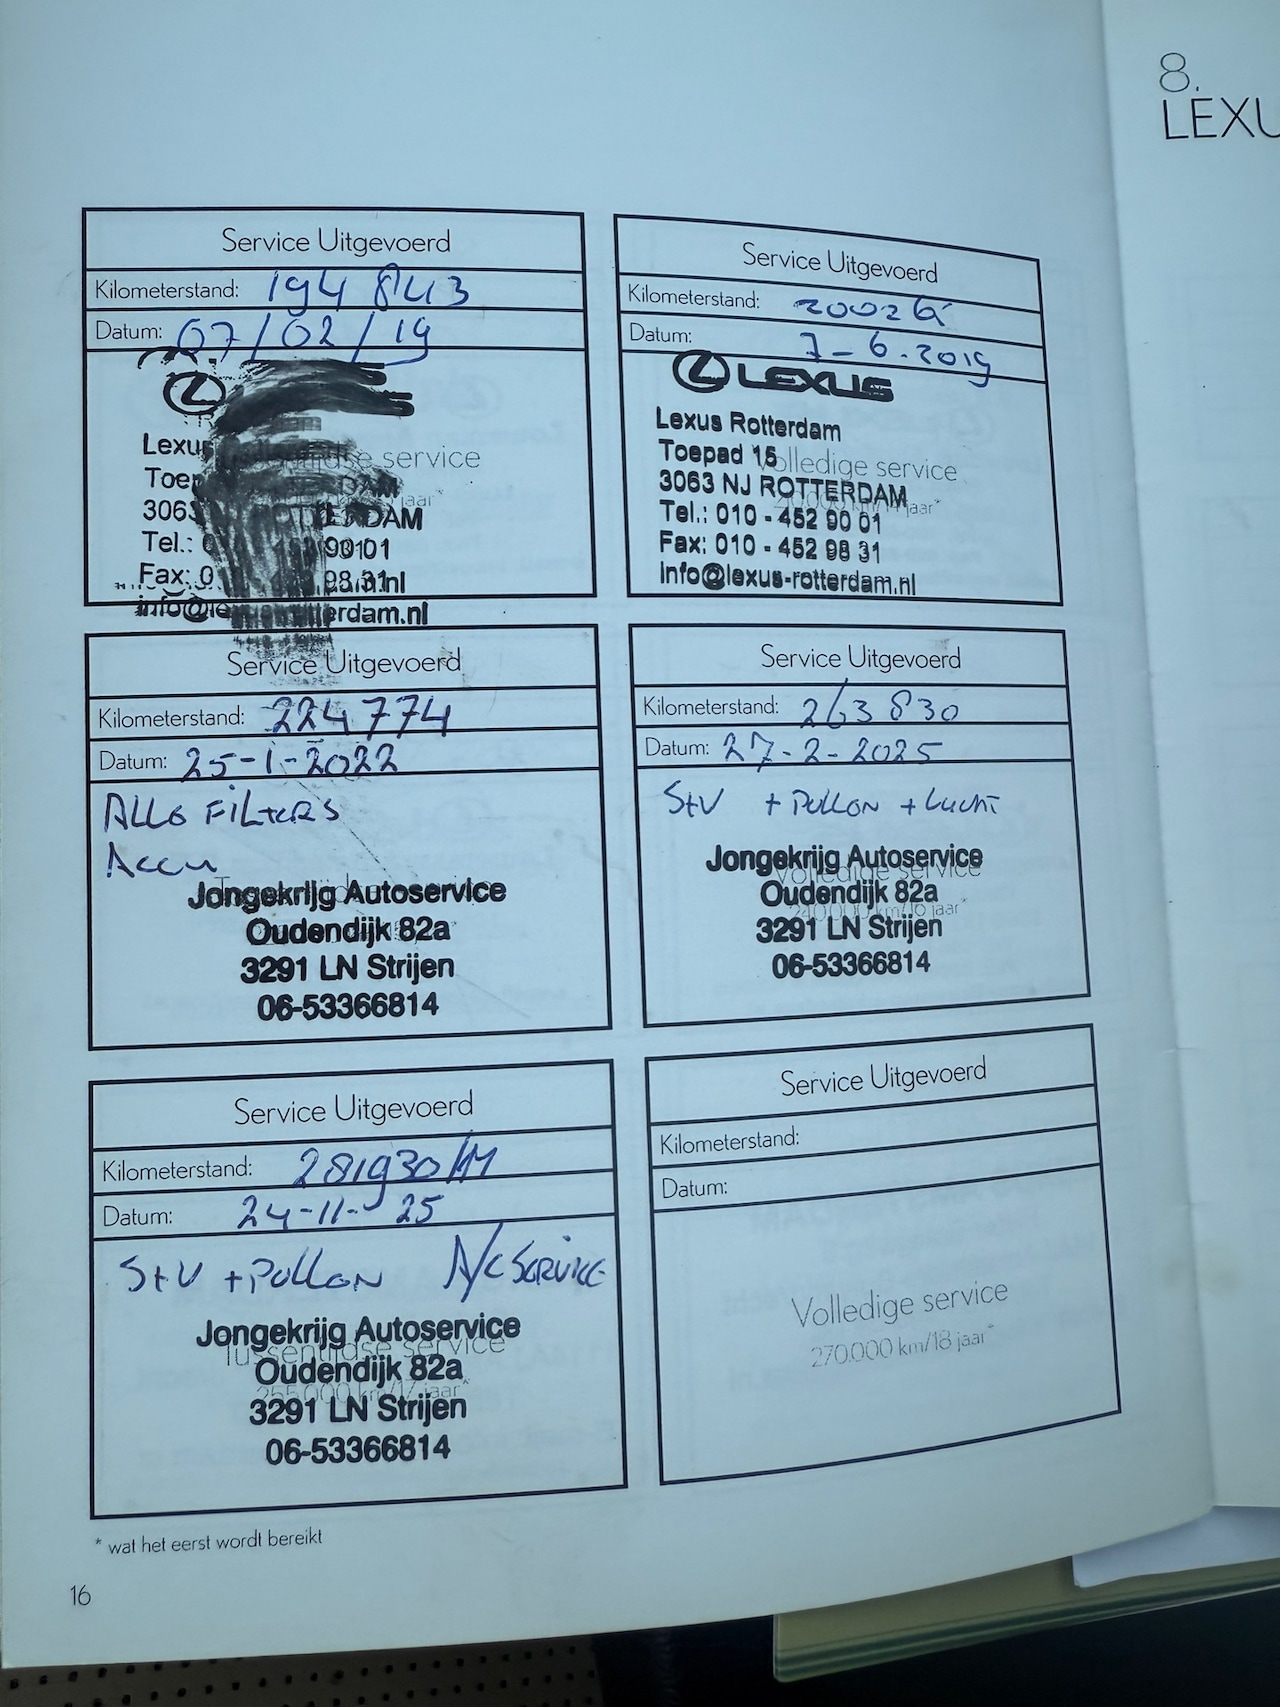 8.
LEXU
Service Uitgevoerd
Kilometerstand: 194 843
Datum: 07/02/19
Lexus
service
jaar*
3063
DAM
Tel.: 0 90 01
Fax: 0 98 31
info@le erdam.nl
Service Uitgevoerd
Kilometerstand:
Datum: 7-6.2019
LEXUS
Lexus Rotterdam
Toepad 15
Volledige service
3063 NJ ROTTERDAM
jaar*
Tel.: 010 - 452 90 01
Fax: 010 - 452 98 31
info@lexus-rotterdam.nl
Service Uitgevoerd
Kilometerstand: 224774
Datum: 25-1-2022
ALLE FILTERS
Accu
Jongekrijg Autoservice
Oudendijk 82a
3291 LN Strijen
06-53366814
Service Uitgevoerd
Kilometerstand: 263830
Datum: 27-2-2025
S+V + POLLEN + LUCHT
Jongekrijg Autoservice
Volledige service
Oudendijk 82a
240.000 km/16 jaar*
3291 LN Strijen
06-53366814
Service Uitgevoerd
Kilometerstand: 281930 KM
Datum: 24-11-25
S+V + POLLEN A/C SERVICE
Jongekrijg Autoservice
Tussentijdse service
Oudendijk 82a
255.000 km/17 jaar*
3291 LN Strijen
06-53366814
Service Uitgevoerd
Kilometerstand:
Datum:
Volledige service
270.000 km/18 jaar*
* wat het eerst wordt bereikt
16